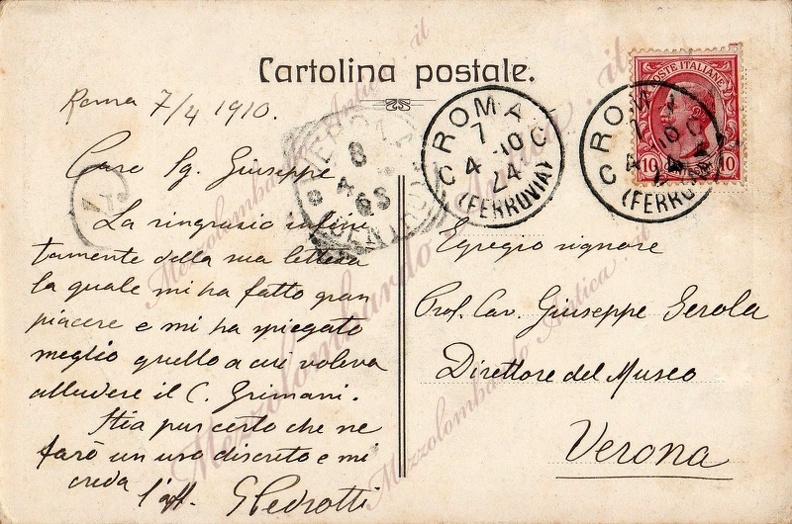 Cartolina postale.
Roma 7/4 1910.
Caro Sg. Giuseppe
La ringrazio infini
tamente della sua lettera
la quale mi ha fatto gran
piacere e mi ha spiegato
meglio quello a cui voleva
alludere il C. Grimani.
Stia pur certo che ne
farò un uso discreto e mi
creda l'aff. GPedrotti
ROMA
7
4 10
C C
24
(FERROVIA)
POSTE ITALIANE
10 10
ROMA
7
4 10
C C
24
(FERROVIA)
VERONA
8
4
Egregio signore
Prof. Cav. Giuseppe Gerola
Direttore del Museo
Verona
Mezzolombardo Antica . it
Mezzolombardo Antica . it
Mezzolombardo Antica . it